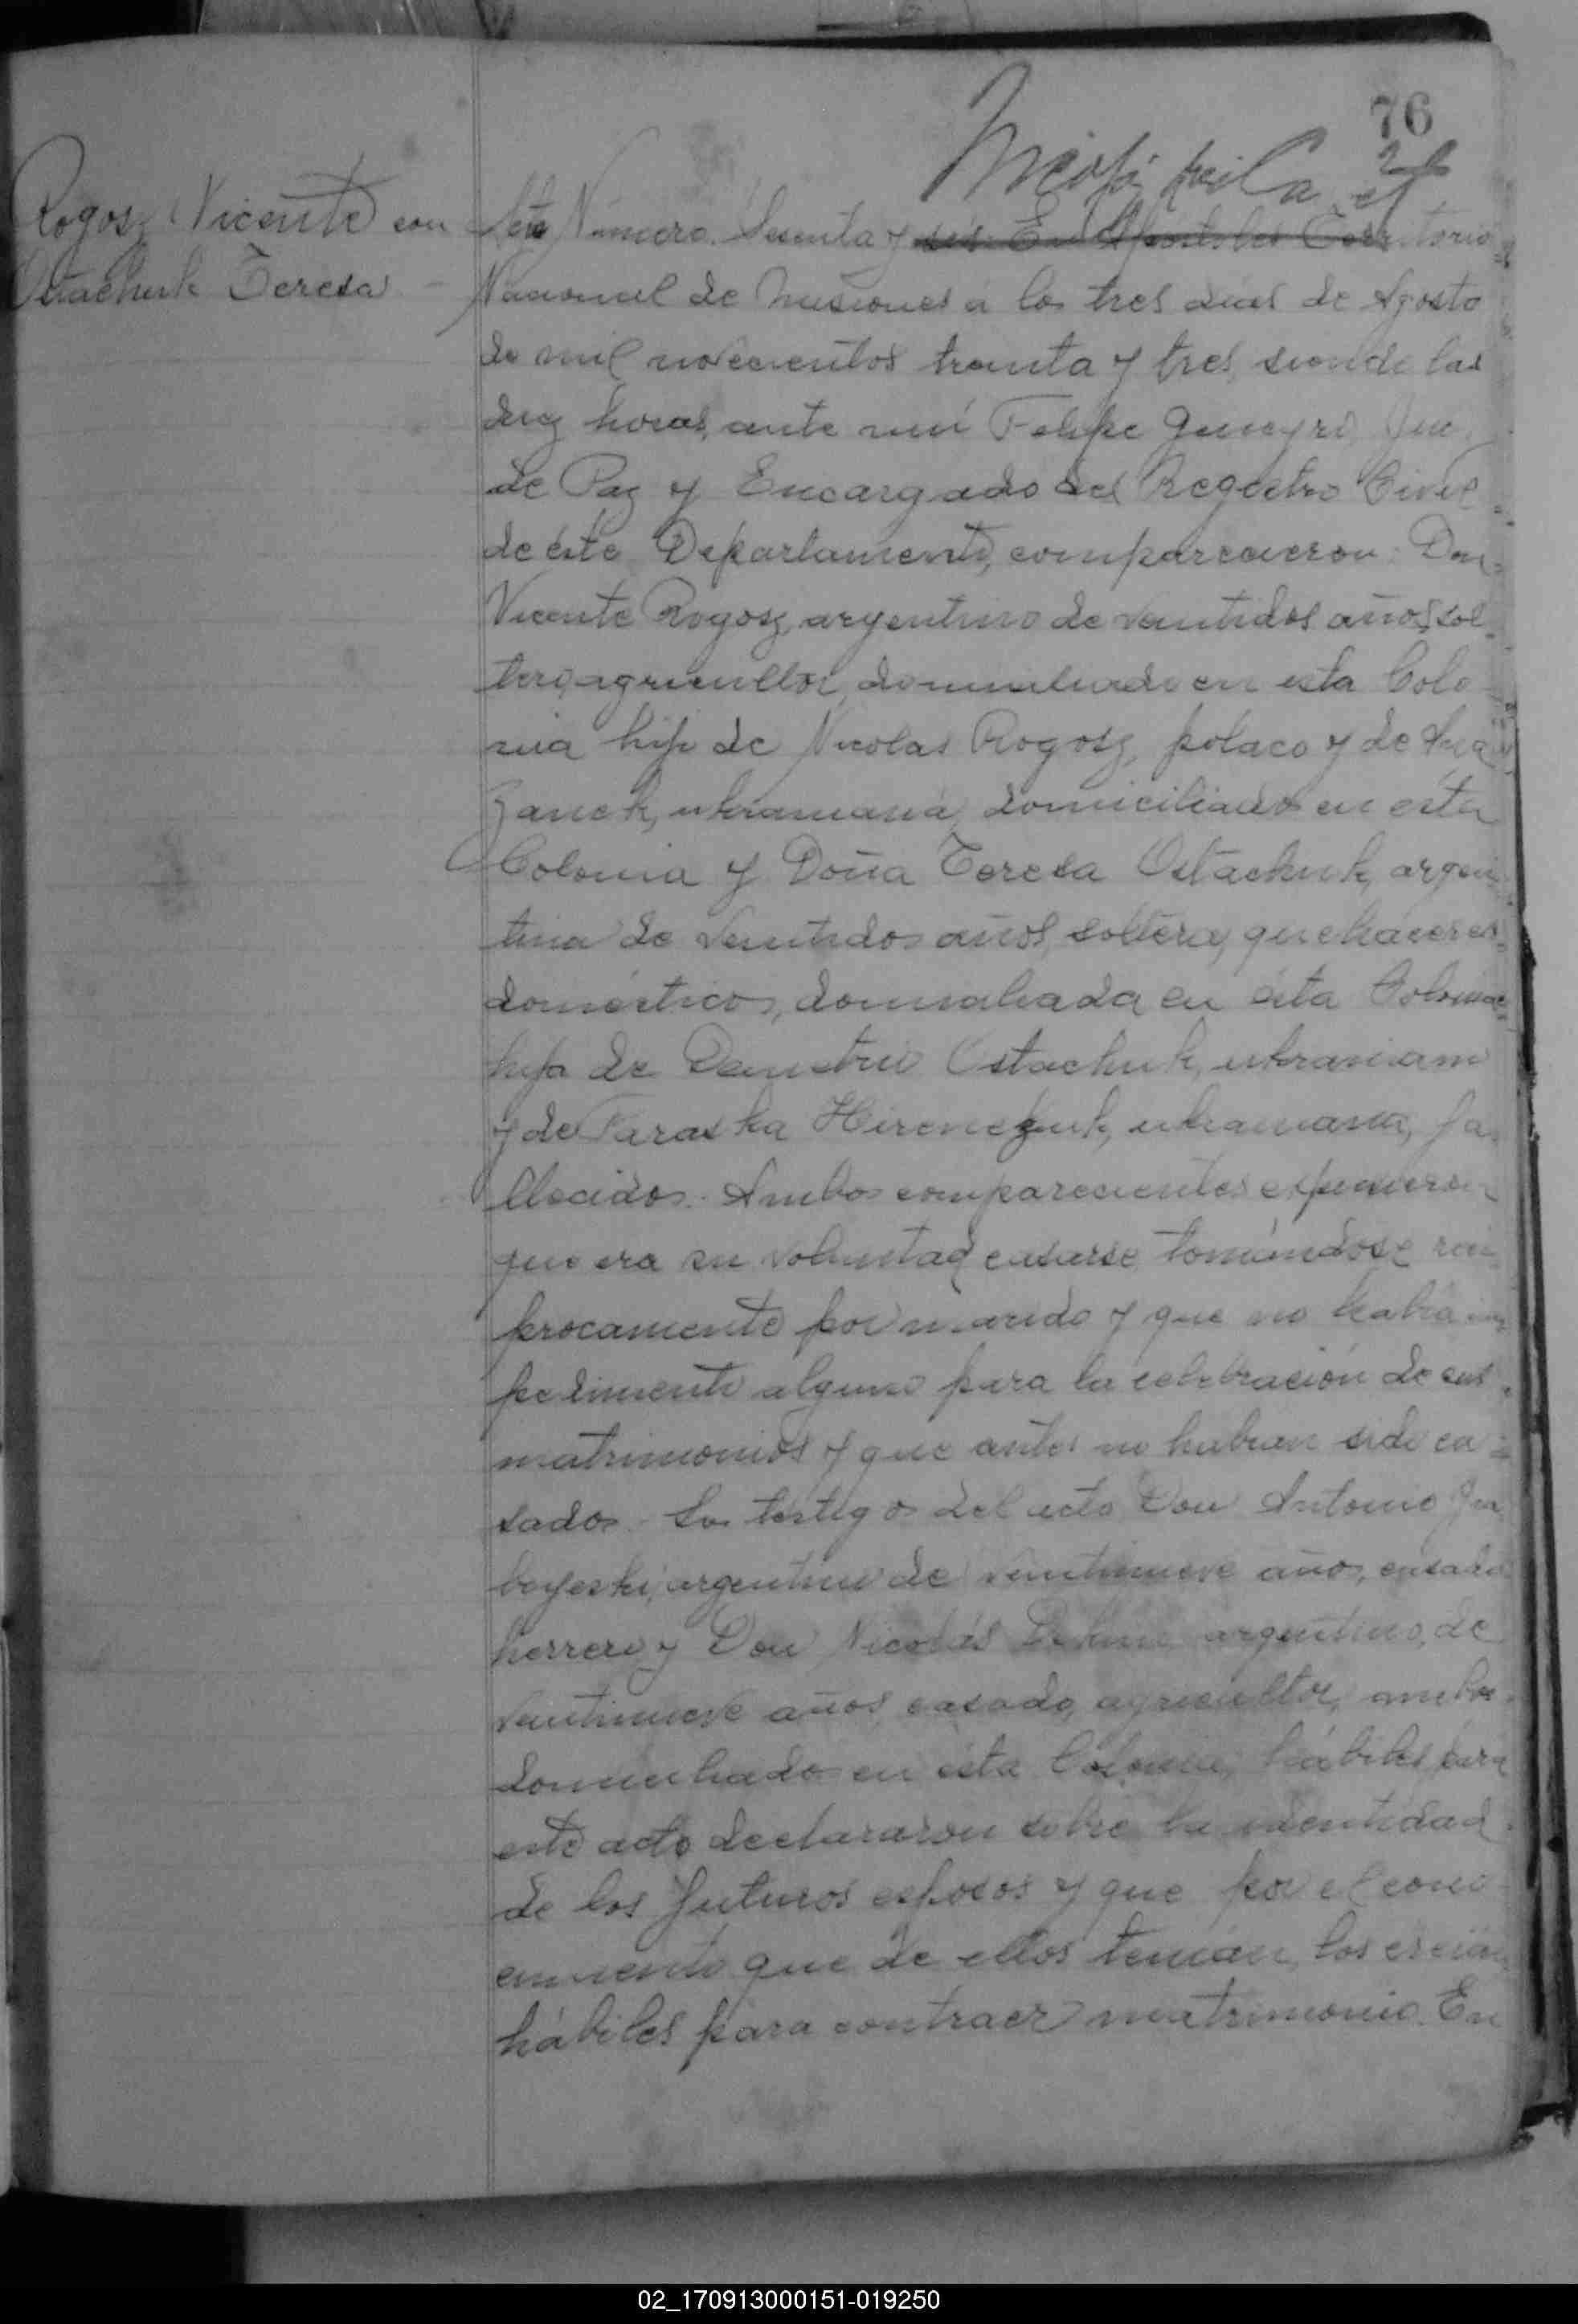 76
Rogosz Vicente con
Ostachuk Teresa -
Acta Número Sesenta y seis. En Apóstoles Territorio
Nacional de Misiones á los tres dias de Agosto
de mil novecientos treinta y tres, siendo las
diez horas, ante mí Felipe Juez
de Paz y Encargado del Registro Civil
de éste Departamento, comparecieron: Don
Vicente Rogosz, argentino de veintidos años, sol
tero, agricultor, domiciliado en esta Colo
nia hijo de Nicolas Rogosz, polaco y de Ana
Zanek, ukraniana, domiciliados en ésta
Colonia y Doña Teresa Ostachuk, argen
tina de veintidos años, soltera, quehaceres
domésticos, domiciliada en ésta Colonia
hija de Demetrio Ostachuk, ukraniano
y de Paraska ukraniana, fa
llecidos. Ambos comparecientes expusieron
que era su voluntad casarse tomándose reci
procamente por marido y que no había im
pedimento alguno para la celebración de sus
matrimonios y que antes no habian sido ca
sados. Los testigos del acto Don Antonio
argentino de veintinueve años, casado
herrero y Don Nicolás argentino, de
veintinueve años, casado, agricultor, ambos
domiciliados en ésta Colonia, hábiles para
este acto declararon sobre la identidad
de los futuros esposos y que por el cono
cimiento que de ellos tenían, los creían
hábiles para contraer matrimonio. En
02_170913000151-019250